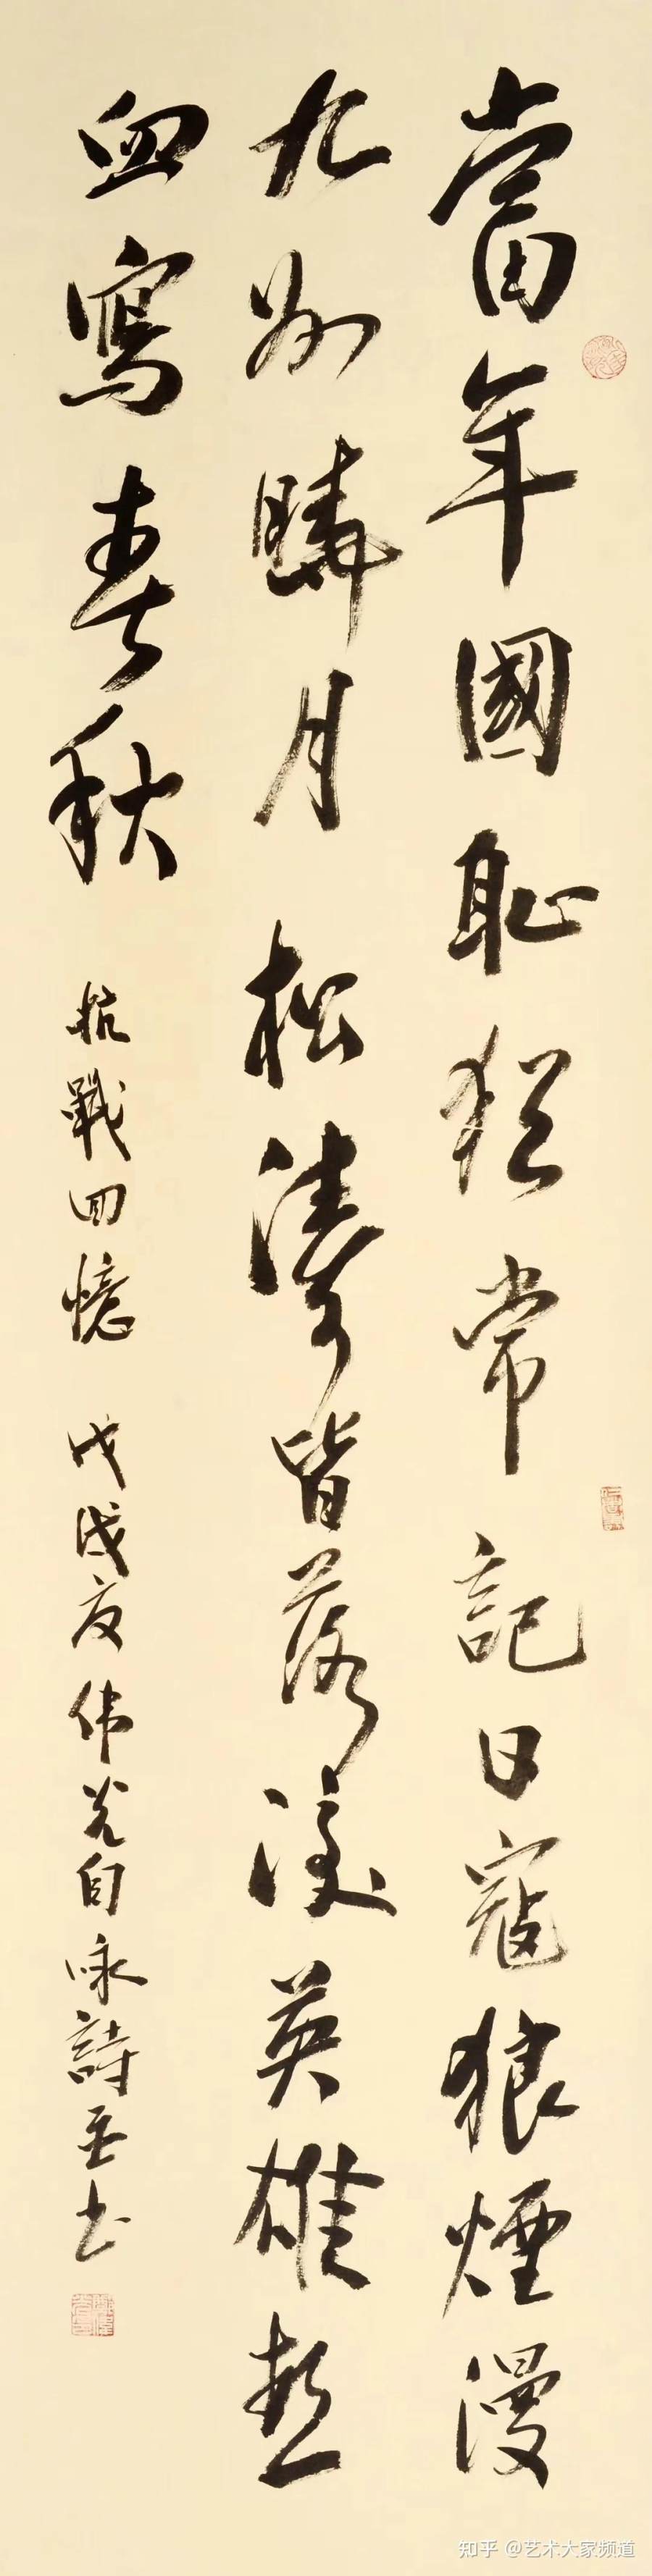 當年國恥猶常記日寇狼煙漫
九州曉月松濤皆落淚英雄熱
血寫春秋
抗戰回憶 戊戌夏伟光自咏詩并书
知乎 @艺术大家频道